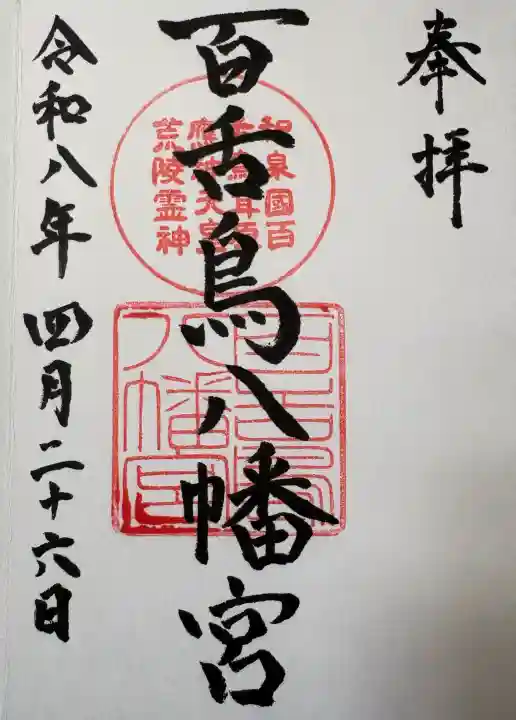 奉拝
百舌鳥八幡宮
和泉國百
荒陵霊神
百舌鳥
八幡宮
令和八年四月二十六日